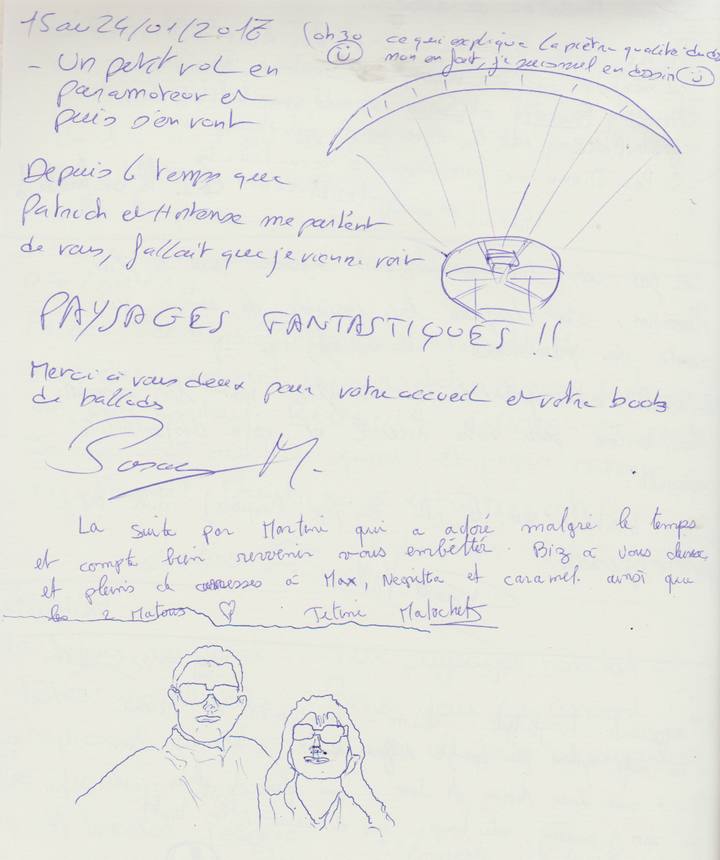 15 au 24/01/2017
(0h30 ce qui explique la piètre qualité du
mon en fait, je suis nul en dessin
- Un petit vol en
paramoteur et
puis s'en vont
Depuis le temps que
Patrick et Hortense me parlent
de vous, fallait que je vienne voir
PAYSAGES FANTASTIQUES !!
Merci à vous deux pour votre accueil et votre
de ballades
M.
La suite par Martine qui a adoré malgré le temps
et compte bien revvenir vous embêtter. Biz à vous deux
et pleins de caresses à Max, Negritta et caramel. ainsi que
les 2 Matous